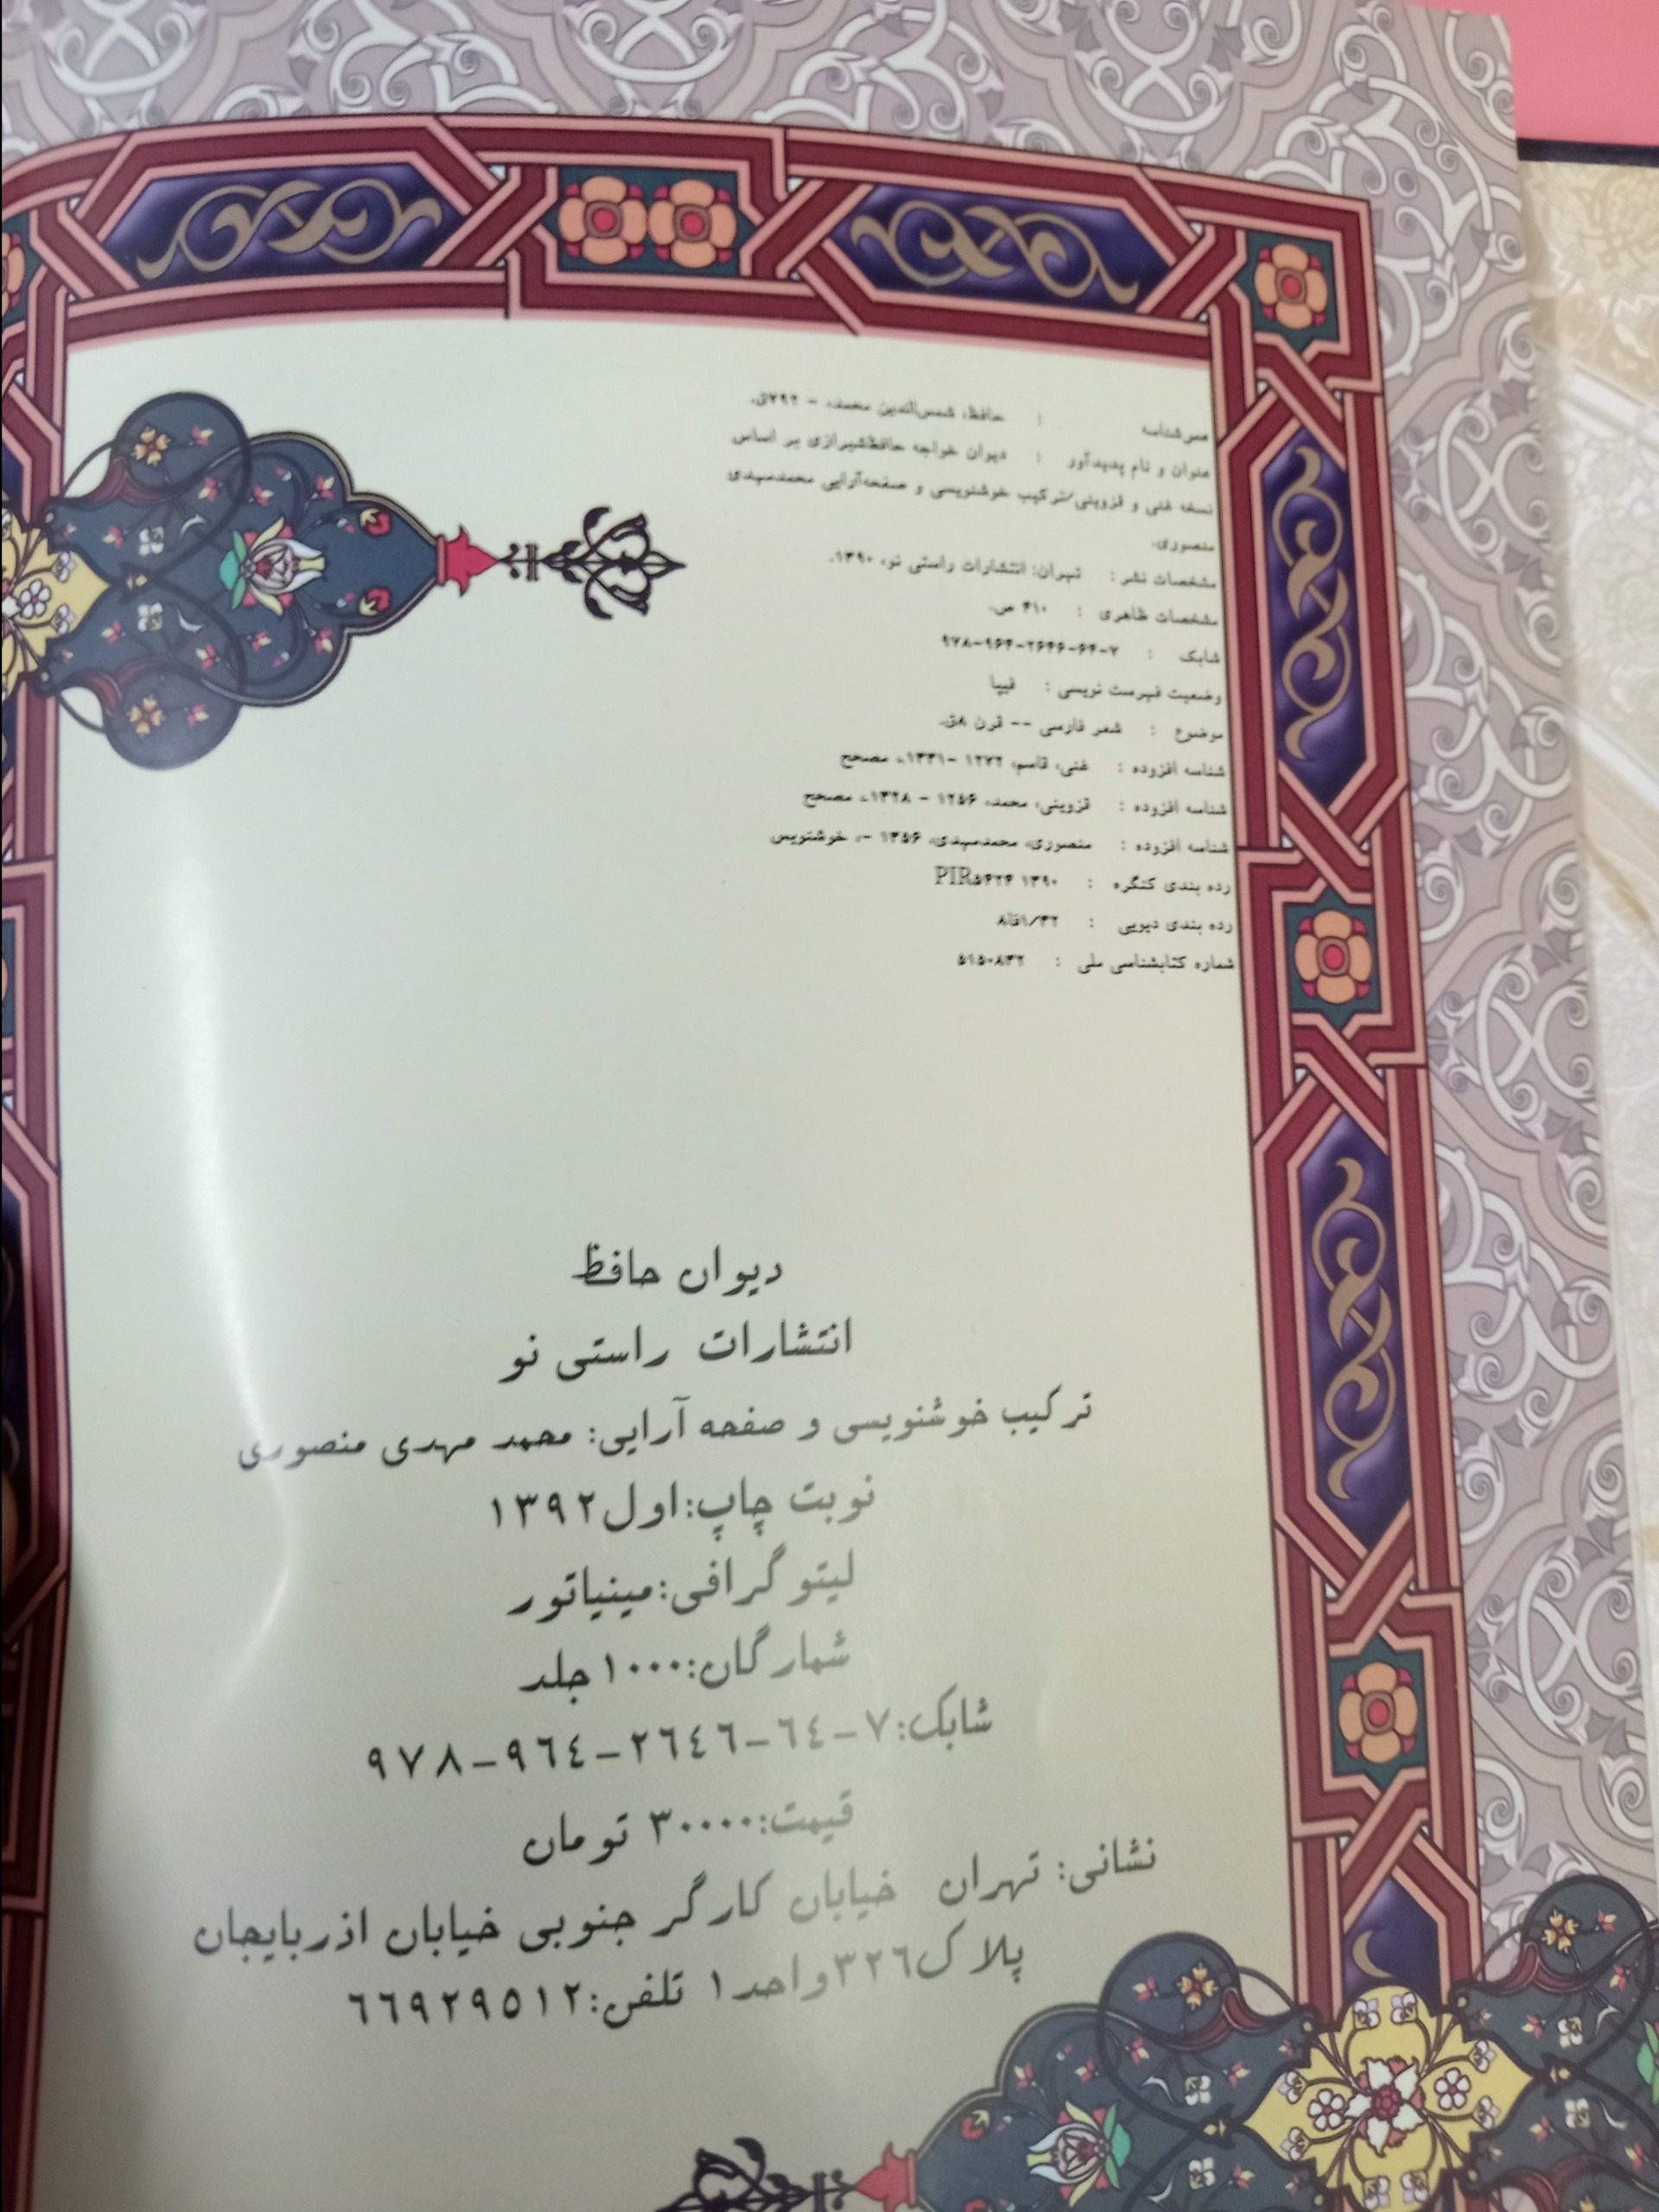 سرشناسه : حافظ، شمس‌الدین محمد، - ۷۹۲ق.
عنوان و نام پدیدآور : دیوان خواجه حافظ‌شیرازی بر اساس
نسخه غنی و قزوینی/ترکیب خوشنویسی و صفحه‌آرایی محمدمهدی
منصوری.
مشخصات نشر : تهران: انتشارات راستی نو، ۱۳۹۰.
مشخصات ظاهری : ۴۱۰ ص.
شابک : ۹۷۸-۹۶۴-۲۶۴۶-۶۴-۷
وضعیت فهرست نویسی : فیپا
موضوع : شعر فارسی -- قرن ۸ق.
شناسه افزوده : غنی، قاسم، ۱۲۷۲ -۱۳۳۱.، مصحح
شناسه افزوده : قزوینی، محمد، ۱۲۵۶ - ۱۳۲۸.، مصحح
شناسه افزوده : منصوری، محمدمهدی، ۱۳۵۶ -، خوشنویس
رده بندی کنگره : PIR۵۴۲۴ ۱۳۹۰
رده بندی دیویی : ۸فا۱/۳۲
شماره کتابشناسی ملی : ۵۱۵۰۸۳۲
دیوان حافظ
انتشارات راستی نو
ترکیب خوشنویسی و صفحه آرایی: محمد مهدی منصوری
نوبت چاپ:اول۱۳۹۲
لیتوگرافی:مینیاتور
شمارگان:۱۰۰۰جلد
شابک:۷-٦٤-۲٦٤٦-۹٦٤-۹۷۸
قیمت:۳۰۰۰۰ تومان
نشانی: تهران خیابان کارگر جنوبی خیابان اذربایجان
پلاک۳۲٦واحد۱ تلفن:٦٦۹۲۹٥۱۲